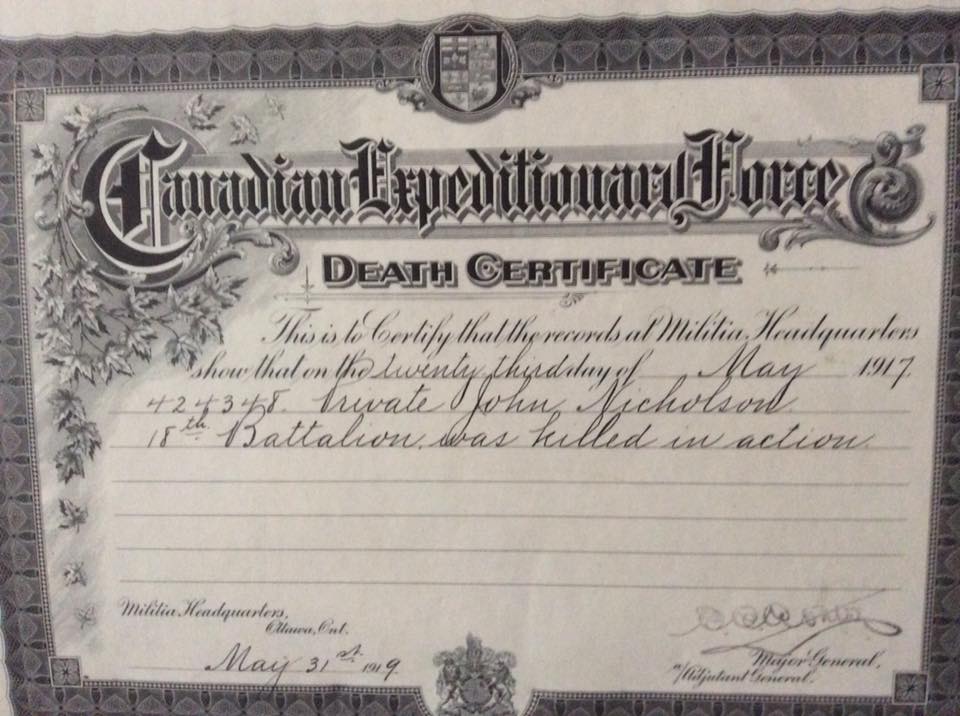 Canadian Expeditionary Force
DEATH CERTIFICATE
This is to Certify that the records at Militia Headquarters
show that on the twenty third day of May 1917.
424348. Private John Nicholson
18th Battalion, was killed in action.
Militia Headquarters,
Ottawa, Ont.
May 31st 1919
Major General,
Adjutant General.